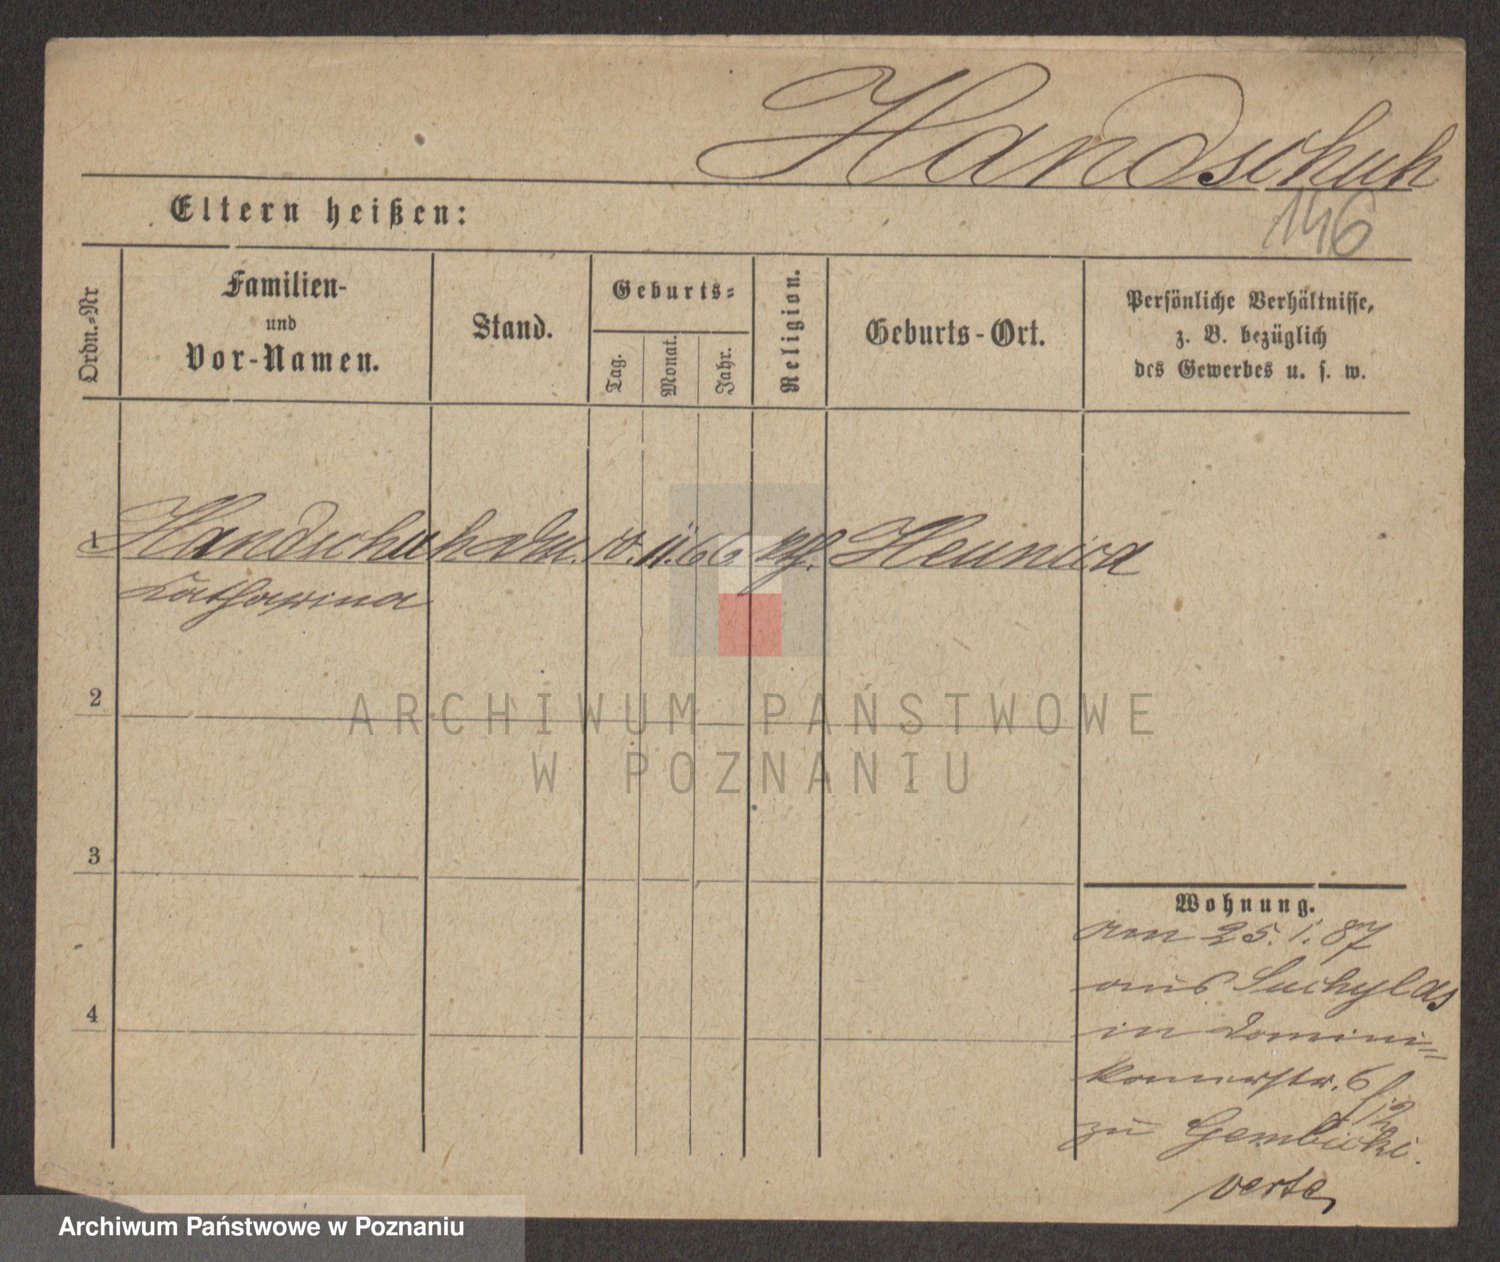 Handschuh
146
Eltern heißen:
Ordn.=Nr
Familien-
und
Vor-Namen.
Stand.
Geburts=
Tag.
Monat.
Jahr.
Religion.
Geburts-Ort.
Persönliche Verhältnisse,
z. B. bezüglich
des Gewerbes u. s. w.
1 Handschuh 10. 11. 66 kth.
Catharina
2
3
4
Wohnung.
am 25. 1. 87
aus Suchylas
in Domini=
kanerstr. 6
zu Gembicki.
verte
ARCHIWUM PAŃSTWOWE
W POZNANIU
Archiwum Państwowe w Poznaniu